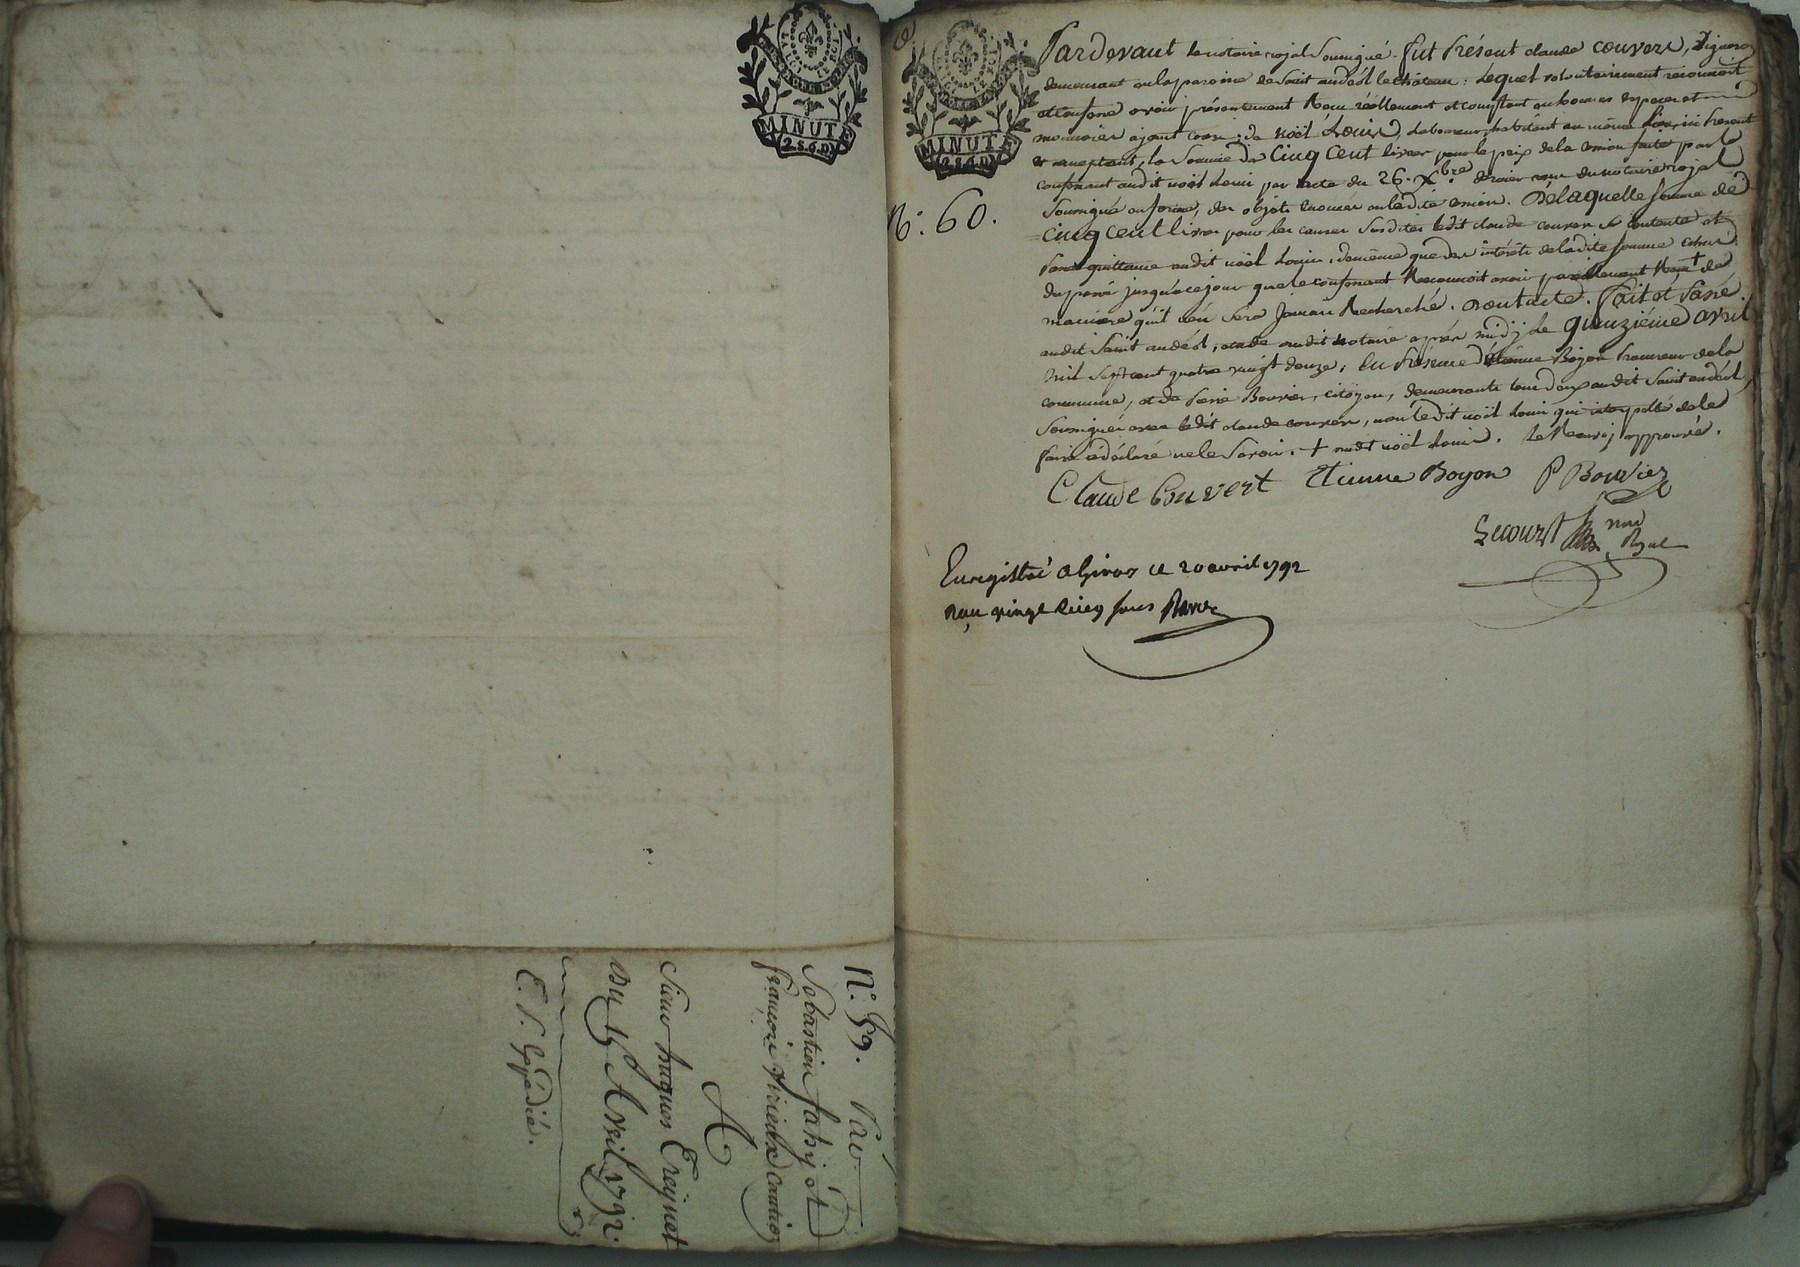 MINUTE
2.S.6.D
n.° 59. Pav
Sebastien fahy et
françoise Virieux Caution
A
Sieur hugues Treynet
Du 15 Avril 1792.
E. P. Expédié.
MINUTE
2.S.6.D
N.° 60.
Pardevant le notaire royal Soussigné. fut Présent claude couvert, vigneron
demeurant en la paroisse de Saint andéol le château : Lequel volontairement reconnoit
et confesse avoir présentement Reçu réellement et comptant en bonnes especes et
monnoies ayant cours, de noël Louis, laboureur habitant au même lieu, ici Present
et acceptant, la Somme de Cinq Cent livres pour le prix de la vente faite par le
confessant audit noël Louis par acte du 26. Xbre. dernier reçu du notaire royal
Soussigné en forme, des objets énoncés en ladite vente. Delaquelle Somme de
cinq cent livres pour les causes Susdites ledit claude couvert se contente et
Passe quittance audit noël Louis, demême que des intérêts de ladite Somme échus
du passé jusqu'àcejour que le confessant Reconnoit avoir pareillement Reçu + de
maniere qu'il n'en Sera Jamais Recherché. Dont acte. Fait et Passé
audit Saint andéol, étude dudit notaire après midy le quinzième avril
mil Sept cent quatre vingt douze, En Présence d'étienne Boyon Procureur de la
commune, et de Pierre Bouvier, citoyen, demeurants tous deux audit Saint andéol,
Soussignés avec ledit claude couvert, non ledit noël Louis qui interpellé de le
faire a déclaré ne le Savoir. + dudt noël Louis. Le Renvoy approuvé.
Claude Couvert Etienne Boyon P Bouvier
Lecourt
not Royal
Enregistré a Givors le 20 avril 1792
Reçu vingt cinq sous